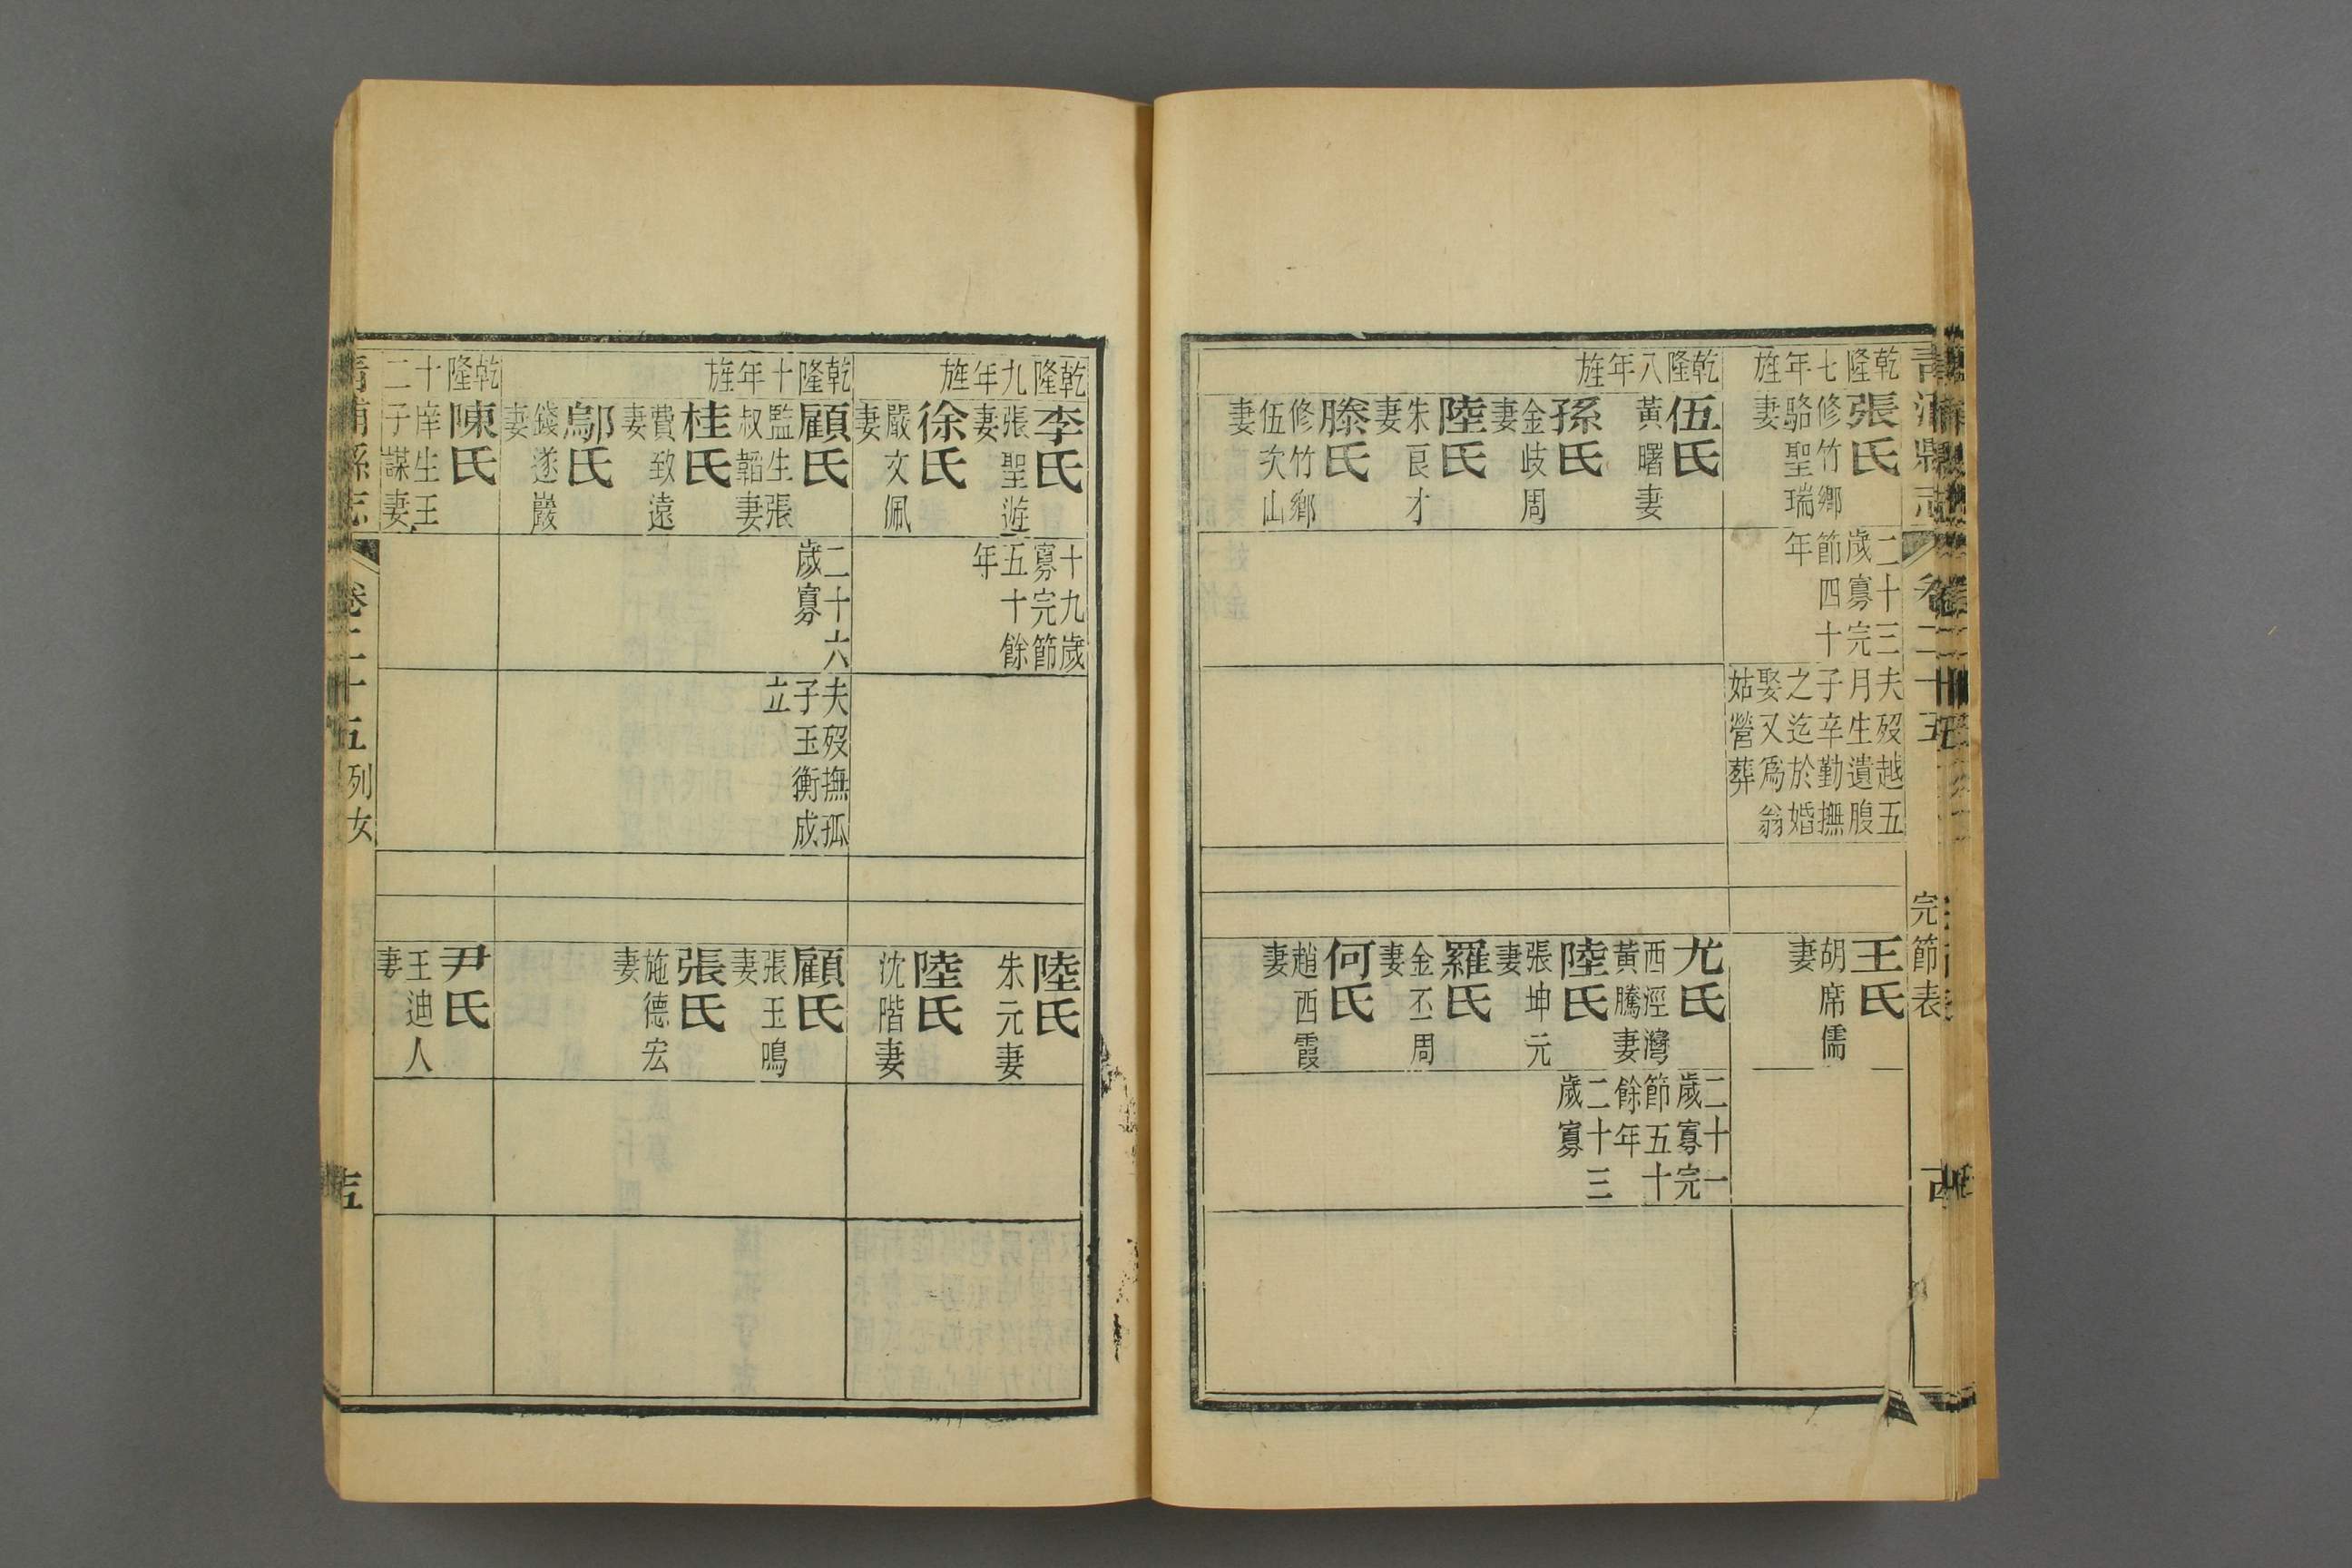 卷二十五
完節表
乾隆七年旌
張氏
修竹鄉
駱聖瑞
妻
二十三
歲寡完
節四十
年
夫歿越五
月生遺腹
子辛勤撫
之迄於婚
娶又爲翁
姑營葬
王氏
胡席儒
妻
乾隆八年旌
伍氏
黃曙妻
孫氏
金歧周
妻
陸氏
朱良才
妻
滕氏
修竹鄉
伍次山
妻
尤氏
西涇灣
黃騰妻
二十一
歲寡完
節五十
餘年
陸氏
張坤元
妻
二十三
歲寡
羅氏
金丕周
妻
何氏
趙西霞
妻
乾隆九年旌
李氏
張聖遊
妻
十九歲
寡完節
五十餘
年
徐氏
嚴文佩
妻
陸氏
朱元妻
陸氏
沈階妻
乾隆十年旌
顧氏
監生張
叔韜妻
二十六
歲寡
夫歿撫孤
子玉衡成
立
桂氏
費致遠
妻
鄔氏
錢遂巖
妻
顧氏
張玉鳴
妻
張氏
施德宏
妻
乾隆十二
陳氏
庠生王
子謀妻
尹氏
王迪人
妻
青浦縣志
卷二十五
列女